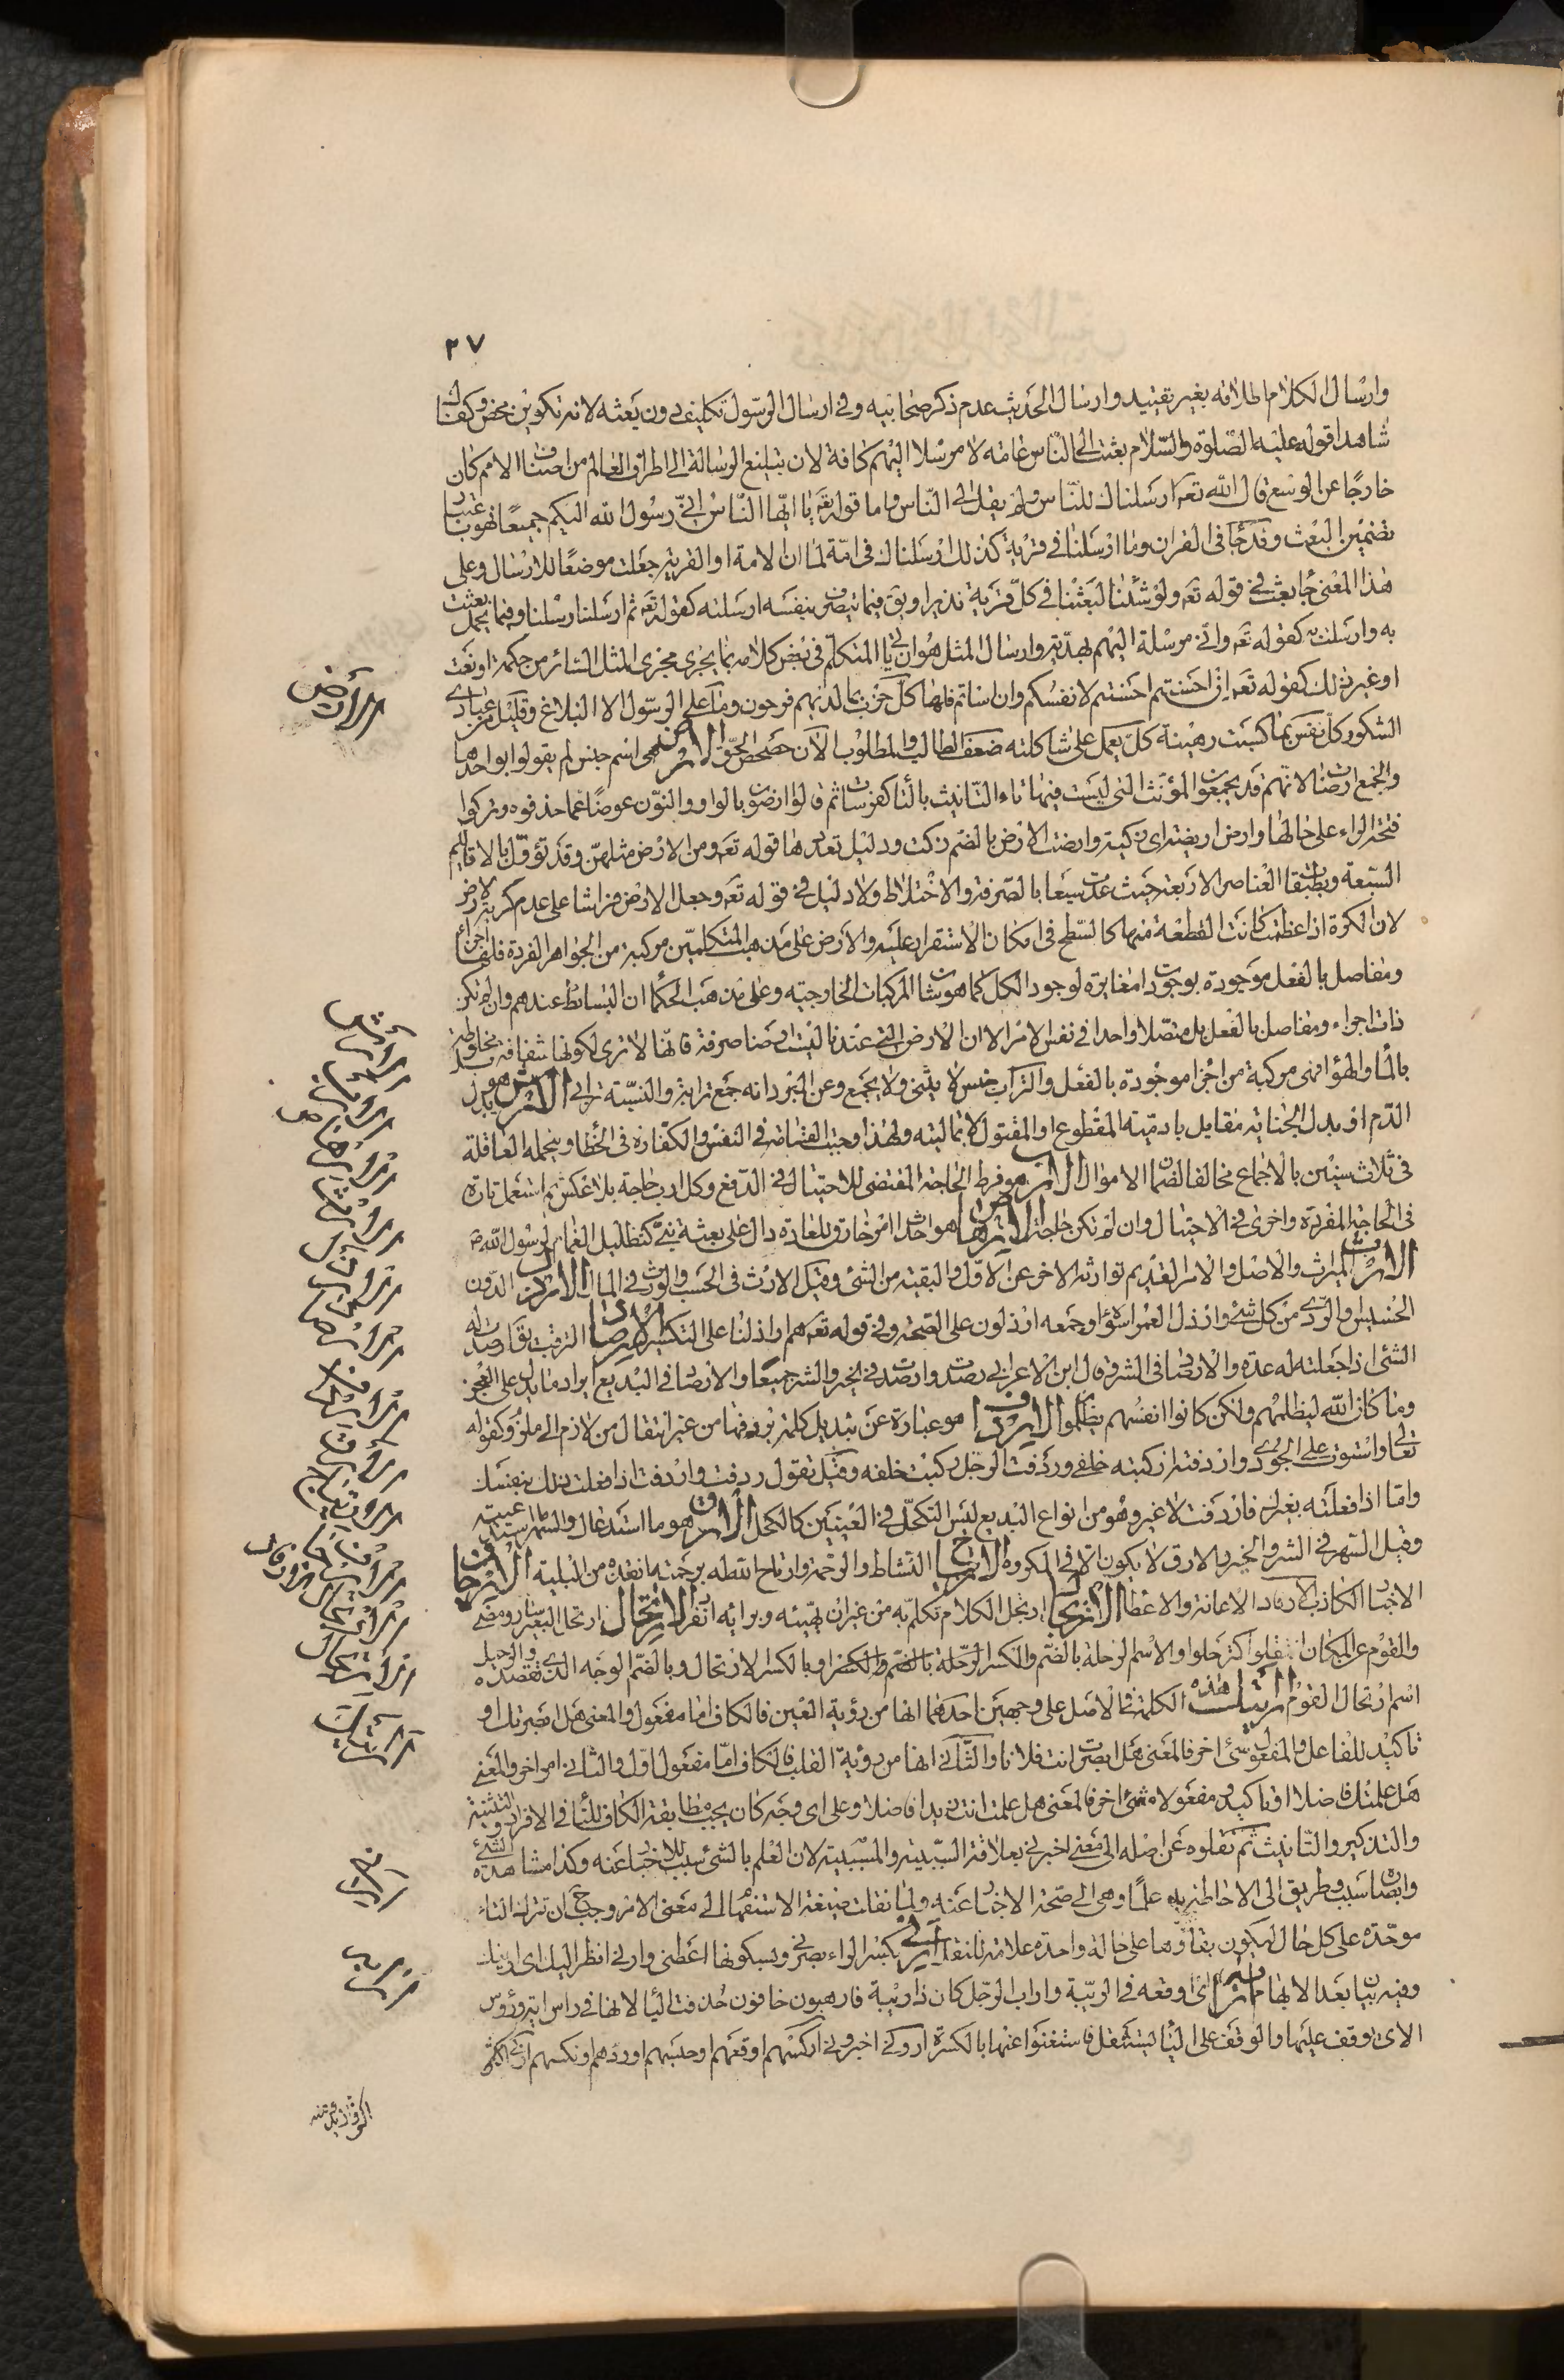 ٢٧
وارسال الكلام اطلاقه بغير تقييد وارسال الحديث عدم ذكر صحابيه وفى ارسال الرسول تكليف دون بعثه لانه تكوين محض وكفاك
شاهدا قوله عليه الصلوة والسلام بعثت الى الناس عامة لا مرسلا اليهم كافة لان تبليغ الرسالة الى اطراف العالم من اصناف الامم كان
خارجا عن الوسع قال الله تعه ارسلناك للناس ولم يقل الى الناس واما قوله تعه يا ايها الناس انى رسول الله اليكم جميعا فهو باعتبار
تضمين البعث وقد جاء فى القران وما ارسلنا فى قرية كذلك ارسلناك فى امة لما ان الامة او القرية جعلت موضعا للارسال وعلى
هذا المعنى جاء بعث فى قوله تعه ولو شئنا لبعثنا فى كل قرية نذيرا ويق فيما يتصرف بنفسه ارسلته كقوله تعه ثم ارسلنا رسلنا وفيما يحمل بعثت
به وارسلت به كقوله تعه وانى مرسلة اليهم بهدية وارسال المثل هو ان ياتى المتكلم فى بعض كلامه بما يجرى مجرى المثل السائر من حكمة او نعت
او غير ذلك كقوله تعه ان احسنتم احسنتم لانفسكم وان اساتم فلها كل حزب بما لديهم فرحون وما على الرسول الا البلاغ وقليل من عبادى
الشكور كل نفس بما كسبت رهينة كل يعمل على شاكلته ضعف الطالب والمطلوب الآن حصحص الحق الارض هى اسم جنس لم يقولوا بواحدها
والجمع ارضات لانهم قد يجمعون المؤنث التى ليست فيها تاء التانيث بالتاء كفرسات ثم قالوا ارضون بالواو والنون عوضا عما حذفوه وتركوا
فتحة الراء على حالها وارض اريضة اى زكية وارضت الارض بالضم زكت ودليل تعددها قوله تعه ومن الارض مثلهن وقد تؤول بالاقاليم
السبعة وبطبقات العناصر الاربعة حيث عدت سبعا بالصرفة والاختلاط ولا دليل فى قوله تعه وجعل الارض فراشا على عدم كرية الارض
لان الكرة اذا عظمت كانت القطعة منها كالسطح فى امكان الاستقرار عليه والارض على مذهب المتكلمين مركبة من الجواهر الفردة فلها اجزاء
ومفاصل بالفعل موجودة بوجودات مغايرة لوجود الكل كما هو شان المركبات الخارجية وعلى مذهب الحكماء ان البسائط عندهم وان لم تكن
ذات اجزاء ومفاصل بالفعل بل متصلا واحدا فى نفس الامر الا ان الارض التى عندنا ليست ارضا صرفة فانها لا ترى لكونها شفافة بل مخلوطة
بالماء والهواء فهى مركبة من اجزاء موجودة بالفعل والتراب جنس لا يثنى ولا يجمع وعن المبرد انه جمع ترابة والنسبة ترابى الارش هو بدل
الدم او بدل الجناية مقابل بادمية المقطوع او المقتول لا بماليته ولهذا وجب القسامة فى النفس والكفارة فى الخطا ويتحمله العاقلة
فى ثلاث سنين بالاجماع مخالفا لضمان الاموال الارب هو فرط الحاجة المقتضى للاحتيال فى الدفع وكل ارب حاجة بلا عكس ثم استعمل تارة
فى الحاجة المفردة واخرى فى الاحتيال وان لم تكن حاجة الارهاص هو احداث امر خارق للعادة دال على بعثة نبى كتظليل الغمام لرسول الله
الارث الميراث والاصل والامر القديم توارثه الاخر عن الاول والبقية من الشئ وقيل الارث فى الحسب والورث فى المال الارذل الدون
الخسيس والردى من كل شئ وارذل العمر اسوؤه وجمعه ارذلون على الصحة وفى قوله تعه هم اراذلنا على التكسير الارصاد الترقب يق ارصدت له
الشئ اذا جعلته له عدة والارصاد فى الشر وقال ابن الاعرابى رصدت وارصدت فى الخير والشر جميعا والارصاد فى البديع ايراد ما يدل على العجز
وما كان الله ليظلمهم ولكن كانوا انفسهم يظلمون الارداف هو عبارة عن تبديل كلمة بردفها من غير انتقال من لازم الى ملزوم كقوله
تعالى واستوت على الجودى واردفته اركبته خلفى وردفت الرجل ركبت خلفه وقيل تقول ردفت واردفت اذا فعلت ذلك بنفسك
واما اذا فعلته بغيرك فاردفت لا غير وهو من انواع البديع ليس التكحل فى العينين كالكحل الارق هو ما استدعاك والسهر ما استدعيته
وقيل السهر فى الشر والخير والارق لا يكون الا فى المكروه الارتياح النشاط والرحمة وارتاح الله له برحمته انقذه من البلية الارجاف
الاخبار الكاذب الارفاد الاعانة والاعطاء الارتجال ارتجل الكلام تكلم به من غير ان يهيئه وبرايه انفرد الارتحال ارتحل البعير سار ومضى
والقوم عن المكان انتقلوا كترحلوا والاسم الرحلة بالضم والكسر او الرحلة بالكسر الارتحال وبالضم الوجه الذى تقصده والرحيل
اسم ارتحال القوم ارايت هذه الكلمة فى الاصل على وجهين احدهما انها من رؤية العين فالكاف اما مفعول والمعنى هل ابصرتك او
تاكيد للفاعل والمفعول شئ اخر فالمعنى هل ابصرت انت فلانا والثانى انها من رؤية القلب فالكاف اما مفعول اول والثانى امر اخر والمعنى
هل علمتك فاضلا او تاكيد ومفعولاه شئ اخر فالمعنى هل علمت انت زيدا فاضلا وعلى اى وجه كان يجب مطابقة الكاف للتاء فى الافراد والتثنية
والتذكير والتانيث ثم نقلوه عن اصله الى معنى اخبرنى بعلاقة السببية والمسببية لان العلم بالشئ سبب للاخبار عنه وكذا مشاهدة الشئ
وابصاره سبب وطريق الى الاحاطة به علما وهى الى صحة الاخبار عنه ولما نقلت صيغة الاستفهام الى معنى الامر وجب ح ان تترك التاء
موحدة على كل حال ليكون بقاؤها على حالة واحدة علامة للنقل ارنى بكسر الراء بصرنى وبسكونها اعطنى وارنى انظر اليك اى ارنى ذلك
وفيه بيان بعد الابهام ارابه اى اوقعه فى الريبة واراب الرجل كان ذا ريبة فارهبون خافون حذفت الياء لانها فى راس اية ورؤس
الاى توقف عليها والوقف على الياء يستثقل فاستغنوا عنها بالكسرة ارونى اخبرونى اركسهم اوقعهم او حبسهم او ردهم او نكسهم
الأرض
الأرش
الارب
الارهاص
الارث
الارذل
الارصاد
الارداف
الأرق
الارتياح
الارجاف
الارتجال
الارتحال
ارنى